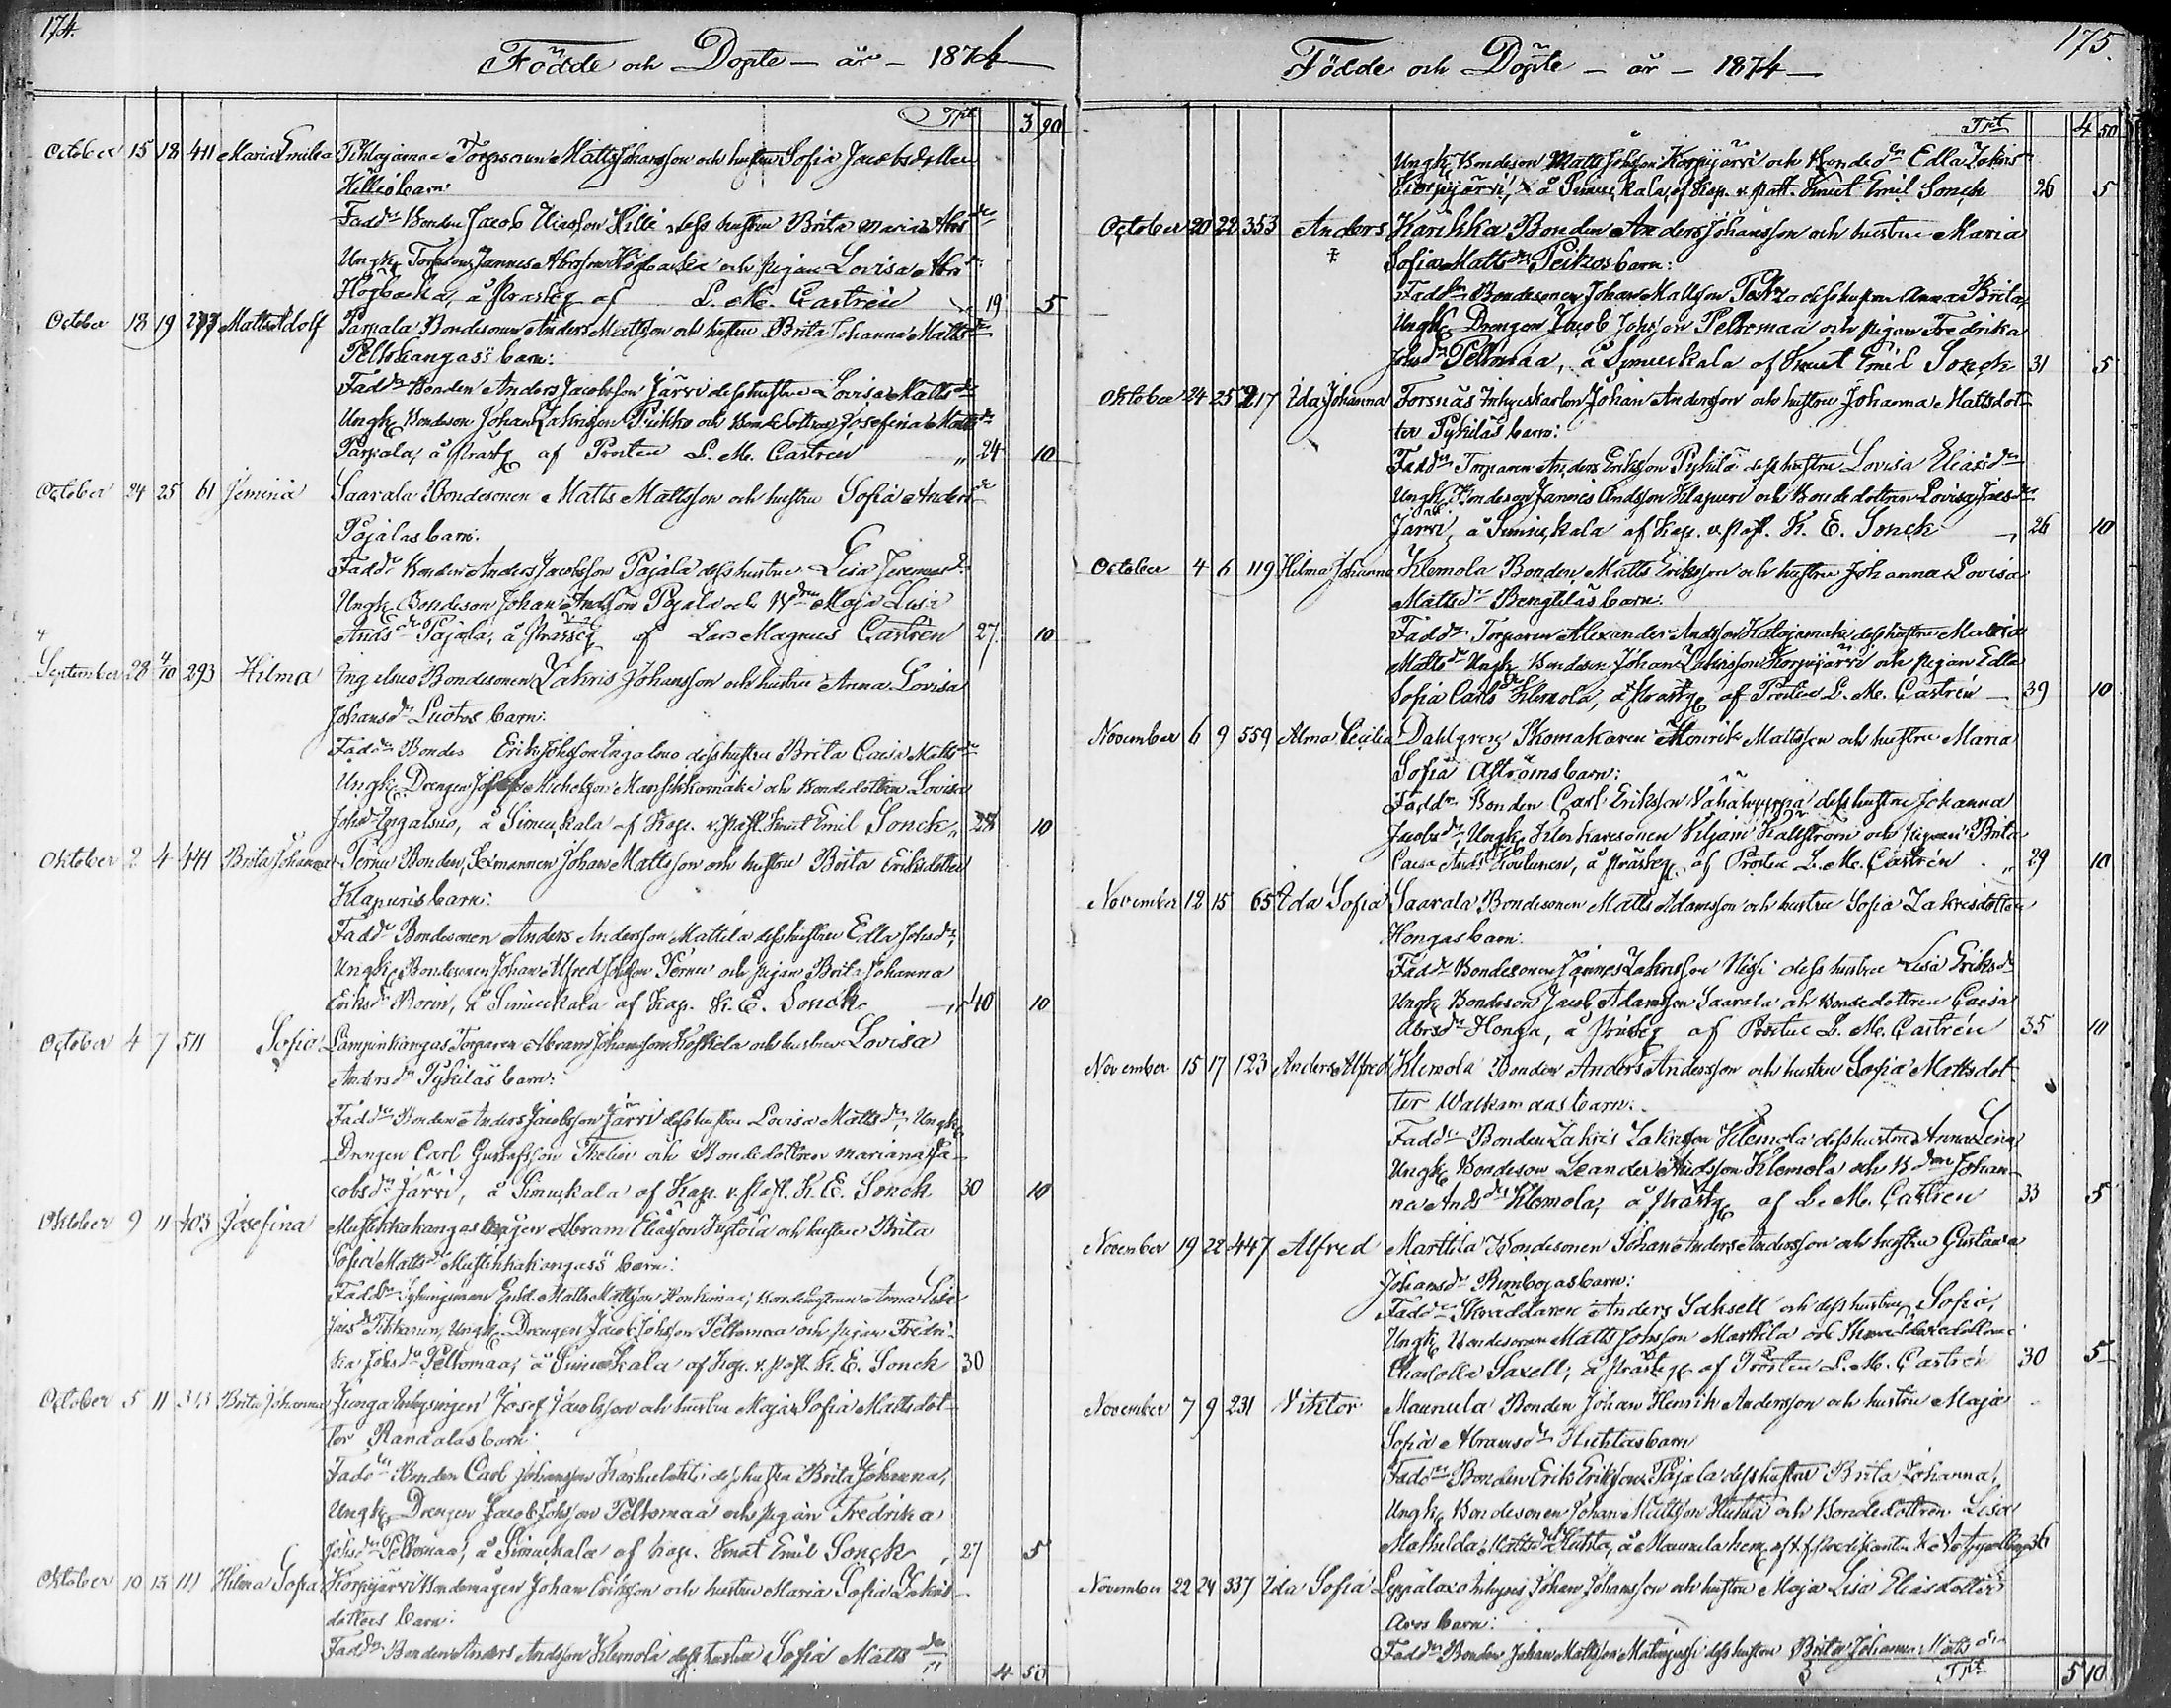 174.
Födde och Döpte - år - 1874
Trpt 3 90
October 15 18 411 Maria Emilia Torparen Matts Johansson och hustru Sofia Jacobsdotter
Killiö barn:
Fadd: Bonden Jacob Eliasson Killi dess hustru Brita Maria Abrsdr
Ungk. Torpson Jannes Abrsson Högbacka och pigan Lovisa Abrsdr
Högbacka, å Prästg. af L. M. Castrén „ 19 5
October 18 19 277 Matts Adolf Parpala Bondesonen Anders Mattsson och hustru Brita Johanna Mattsdr
Peltokangas's barn:
Faddr Bonden Anders Jacobsson Järvi dess hustru Lovisa Mattsdr
Ungk. Bondeson Johan Zakrisson och Bondedottren Josefina Mattsdr
Parpala, å Prästg af Prosten L. M. Castrén „ 24 10
October 24 25 61 Jemina Saarala Bondesonen Matts Mattsson och hustru Sofia Andersdr
Pajalas barn.
Faddr Bonden Anders Jacobsson Pajala dess hustru Lisa Jeremiasdr
Ungk. Bondeson Johan Andsson Pajala och Bdren Maja Lisa
Andsdr Pajala, å Prästg af Lars Magnus Castrén 27 10
September 28 4/10 293 Hilma Ingalsuo Bondesonen Zakris Johansson och hustru Anna Lovisa
Johansdr Luotos barn:
Faddr Bonden Erik Johsson Ingalsuo dess hustru Brita Caisa Mattsdr
Ungk. Drengen Michelsson Mansikkamäki och Bondedottren Lovisa
Johsdr Ingalsuo, å Simuskala af Kap. v. past. Knut Emil Sonck „ 28 10
Oktober 2 4 441 Brita Johanna Pernu Bonden, Sexmannen Johan Mattsson och hustru Brita Eriksdotter
Klapuris barn:
Faddr Bondesonen Anders Andersson Mattila dess hustru Edla Johsdr,
Ungk. Bondesonen Johan Alfred Johsson Pernu och pigan Brita Johanna
Eriksdr Borin, å Simuskala af Kap. K. E. Sonck „ 40 10
October 4 7 511 Sofia Lampinkangas Torparen Abram Johansson Koskela och hustru Lovisa
Andersdr Pykiläs barn:
Faddr Bonden Anders Jacobsson Järvi dess hustru Lovisa Mattsdr, Ungk.
Drengen Carl Gustafsson Thelin och Bondedottren Mariana Ja-
cobsdr Järvi, å Simuskala af Kap. v. past. K. E. Sonck 30 10
Oktober 9 11 403 Josefina Mustikkakangas Abram Eliasson Knstola och hustru Brita
Sofia Mattsdr Mustikkakangas's barn:
Faddr Matts Mattsson Honkimaa, Anna Lisa
Jacsdr Tikkanen, Ungk. Drengen Jacob Johsson Peltomaa och pigan Fredri-
ka Johsdr Peltomaa, å Simuskala af Kap. v. past. K. E. Sonck 30
October 5 11 313 Brita Johanna Junga Inhysingen Josef Jacobsson och hustru Maja Sofia Mattsdot-
ter Randalas barn:
Faddr Bonden Carl Johansson Karhulahti dess hustru Brita Johanna,
Ungk. Drengen Jacob Johsson Peltomaa och pigan Fredrika
Johsdr Peltomaa, å Simuskala af Kap. Knut Emil Sonck, 27 5
Oktober 10 13 111 Hilma Sofia Korpijärvi Bondemågen Johan Ericsson och hustru Maria Sofia Zakris-
dotters barn:
Faddr Bonden Anders Andsson Klemola dess hustru Sofia Mattsdr
4 50
175.
Födde och Döpte - år - 1874
Trpt 4 50
Ungk. Bondeson Matts Johsson Korpijärvi och Bondedn Edla Zakrisdr
Korpijärvi, å Simuskala, af Kap. v. past. Knut Emil Sonck 26 5
October 20 22 353 Anders Karikka Bonden Anders Johansson och hustru Maria
Sofia Mattsdr Peikos barn:
Faddr Bondesonen Johan Mattsson Peikko dess hustru Anna Brita,
Ungk. Drengen Jacob Johsson Peltomaa och pigan Fredrika
Johsdr Peltomaa, å Simuskala af Knut Emil Sonck 31 5
Oktober 24 25 217 Ida Johanna Forsnäs Inhyseskarlen Johan Andersson och hustru Johanna Mattsdot-
ter Pykiläs barn:
Faddr Torparen Anders Eriksson Pykilä dess hustru Lovisa Eliasdr
Ungk. Bondeson Jannes Andsson Klapuri och Bondedottren Lovisa Jacsdr
Järvi, å Simuskala af Kap. v. past. K. E. Sonck „ 26 10
October 4 6 119 Hilma Johanna Klemola Bonden Matts Eriksson och hustru Johanna Lovisa
Mattsdr Bengtiläs barn:
Faddr Torparen Alexander Andsson Katajamaki dess hustru Maria
Mattsdr Ungk Bondeson Johan Zakrisson Korpijärvi och pigan Edla
Sofia Carlsdr Klemola, å Prästg af Prosten L. M. Castrén 39 10
November 6 9 559 Alma Cecilia Dahlgren Skomakaren Henrik Mattsson och hustru Maria
Sofia Åströms barn:
Faddr Bonden Carl Eriksson dess hustru Johanna
Jacobsdr, Ungk. Klockaresonen Viljam Hällström och pigan Brita
Caisa Andsdr Koutunen, å Prästg. af Prosten L. M. Castrén „ 29 10
November 12 15 65 Ada Sofia Saarala Bondesonen Matts Adamsson och hustru Sofia Zakrisdotter
Hongas barn:
Faddr Bondesonen Jannes Zakrisson dess hustru Lisa Eriksdr
Ungk. Bondeson Jacob Adamsson Saarala och Bondedottren Caisa
Abrsdr Honga, å Prästg af Prosten L. M. Castrén 35 10
November 15 17 123 Anders Alfred Klemola Bonden Anders Andersson och hustru Sofia Mattsdot-
ter Walkamaas barn:
Faddr Bonden Zakris Zakrisson Klemola dess hustru Anna Lena,
Ungk. Bondeson Leander Andsson Klemola och Bdren Johan-
na Andsdr Klemola, å Prästg af L. M. Castrén 33 5
November 19 22 447 Alfred Marttila Bondesonen Johan Anders Andersson och hustru Gustava
Johansdr Rimbojas barn:
Faddr Skräddaren Anders Saksell och dess hustru Sofia,
Ungk. Bondesonen Matts Johsson Marttila och Skräddaredottren
Charlotta Saxell, å Prästg. af Prosten L. M. Castrén 30 5
November 7 9 231 Viktor Maunula Bonden Johan Henrik Andersson och hustru Maja
Sofia Abramsdr Huhtas barn
Faddr Bonden Erik Eriksson Pajala dess hustru Brita Johanna,
Ungk. Bondesonen Johan Mattsson Huhta och Bondedottren Lisa
Mathilda Mattsdr Huhta, å Maunula hem, af 36
November 22 24 337 Ida Sofia Leppäloxo Inhyses Johan Johansson och hustru Maja Lisa Eliasdotter
Aros barn:
Faddr Bonden Johan Mattsson dess hustru Brita Johanna Mattsdr
Trpt 5 10